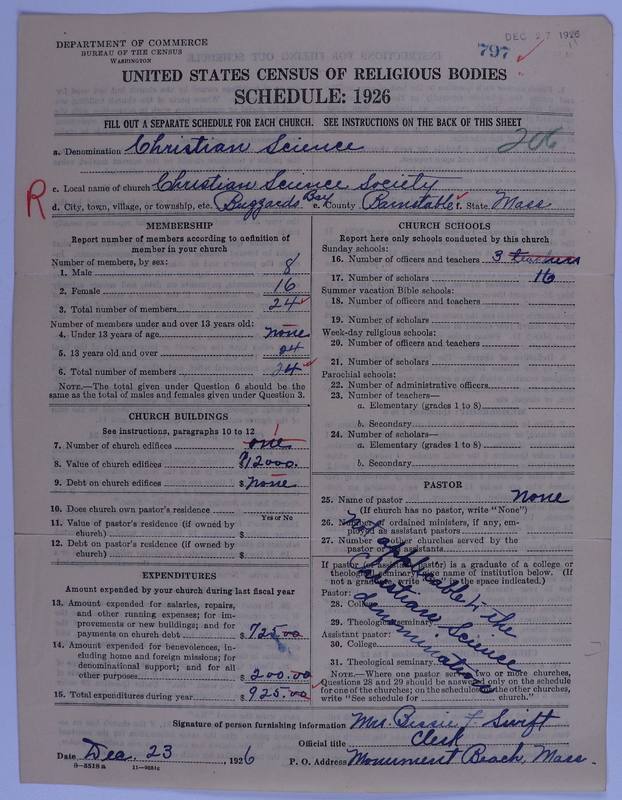 DEC 27 1926
DEPARTMENT OF COMMERCE
BUREAU OF THE CENSUS
WASHINGTON
797
UNITED STATES CENSUS OF RELIGIOUS BODIES
SCHEDULE: 1926
FILL OUT A SEPARATE SCHEDULE FOR EACH CHURCH. SEE INSTRUCTIONS ON THE BACK OF THIS SHEET
a. Denomination Christian Science 206
R
c. Local name of church Christian Science Society
d. City, town, village, or township, etc. Buzzards Bay e. County Barnstable f. State Mass
MEMBERSHIP
Report number of members according to definition of
member in your church
Number of members, by sex:
1. Male 8
2. Female 16
3. Total number of members 24
Number of members under and over 13 years old:
4. Under 13 years of age none
5. 13 years old and over 24
6. Total number of members 24
NOTE.—The total given under Question 6 should be the
same as the total of males and females given under Question 3.
CHURCH BUILDINGS
See instructions, paragraphs 10 to 12
7. Number of church edifices one 1
8. Value of church edifices $12000.
9. Debt on church edifices $ none
10. Does church own pastor's residence
Yes or No
11. Value of pastor's residence (if owned by
church) $
12. Debt on pastor's residence (if owned by
church) $
EXPENDITURES
Amount expended by your church during last fiscal year
13. Amount expended for salaries, repairs,
and other running expenses; for im-
provements or new buildings; and for
payments on church debt $725.00
14. Amount expended for benevolences, in-
cluding home and foreign missions; for
denominational support; and for all
other purposes $200.00
15. Total expenditures during year $925.00
CHURCH SCHOOLS
Report here only schools conducted by this church
Sunday schools:
16. Number of officers and teachers 3 teachers
17. Number of scholars 16
Summer vacation Bible schools:
18. Number of officers and teachers
19. Number of scholars
Week-day religious schools:
20. Number of officers and teachers
21. Number of scholars
Parochial schools:
22. Number of administrative officers
23. Number of teachers—
a. Elementary (grades 1 to 8)
b. Secondary
24. Number of scholars—
a. Elementary (grades 1 to 8)
b. Secondary
PASTOR
25. Name of pastor none
(If church has no pastor, write "None")
26. Number of ordained ministers, if any, em-
ployed as assistant pastors
27. Number of other churches served by the
pastor or assistants
If pastor (or assistant pastor) is a graduate of a college or
theological seminary, give name of institution below. (If
not a graduate, write in the space indicated.)
Pastor:
28. College
29. Theological seminary
Assistant pastor:
30. College
31. Theological seminary
Not applicable to the
Christian Science
denomination
NOTE.—Where one pastor serves two or more churches,
Questions 28 and 29 should be answered only on the schedule
for one of the churches; on the schedules of the other churches,
write "See schedule for church."
Signature of person furnishing information Mrs. Bessie F. Swift
Official title Clerk
Date Dec. 23, 1926 P. O. Address Monument Beach, Mass.
8-5518a 11-9051c